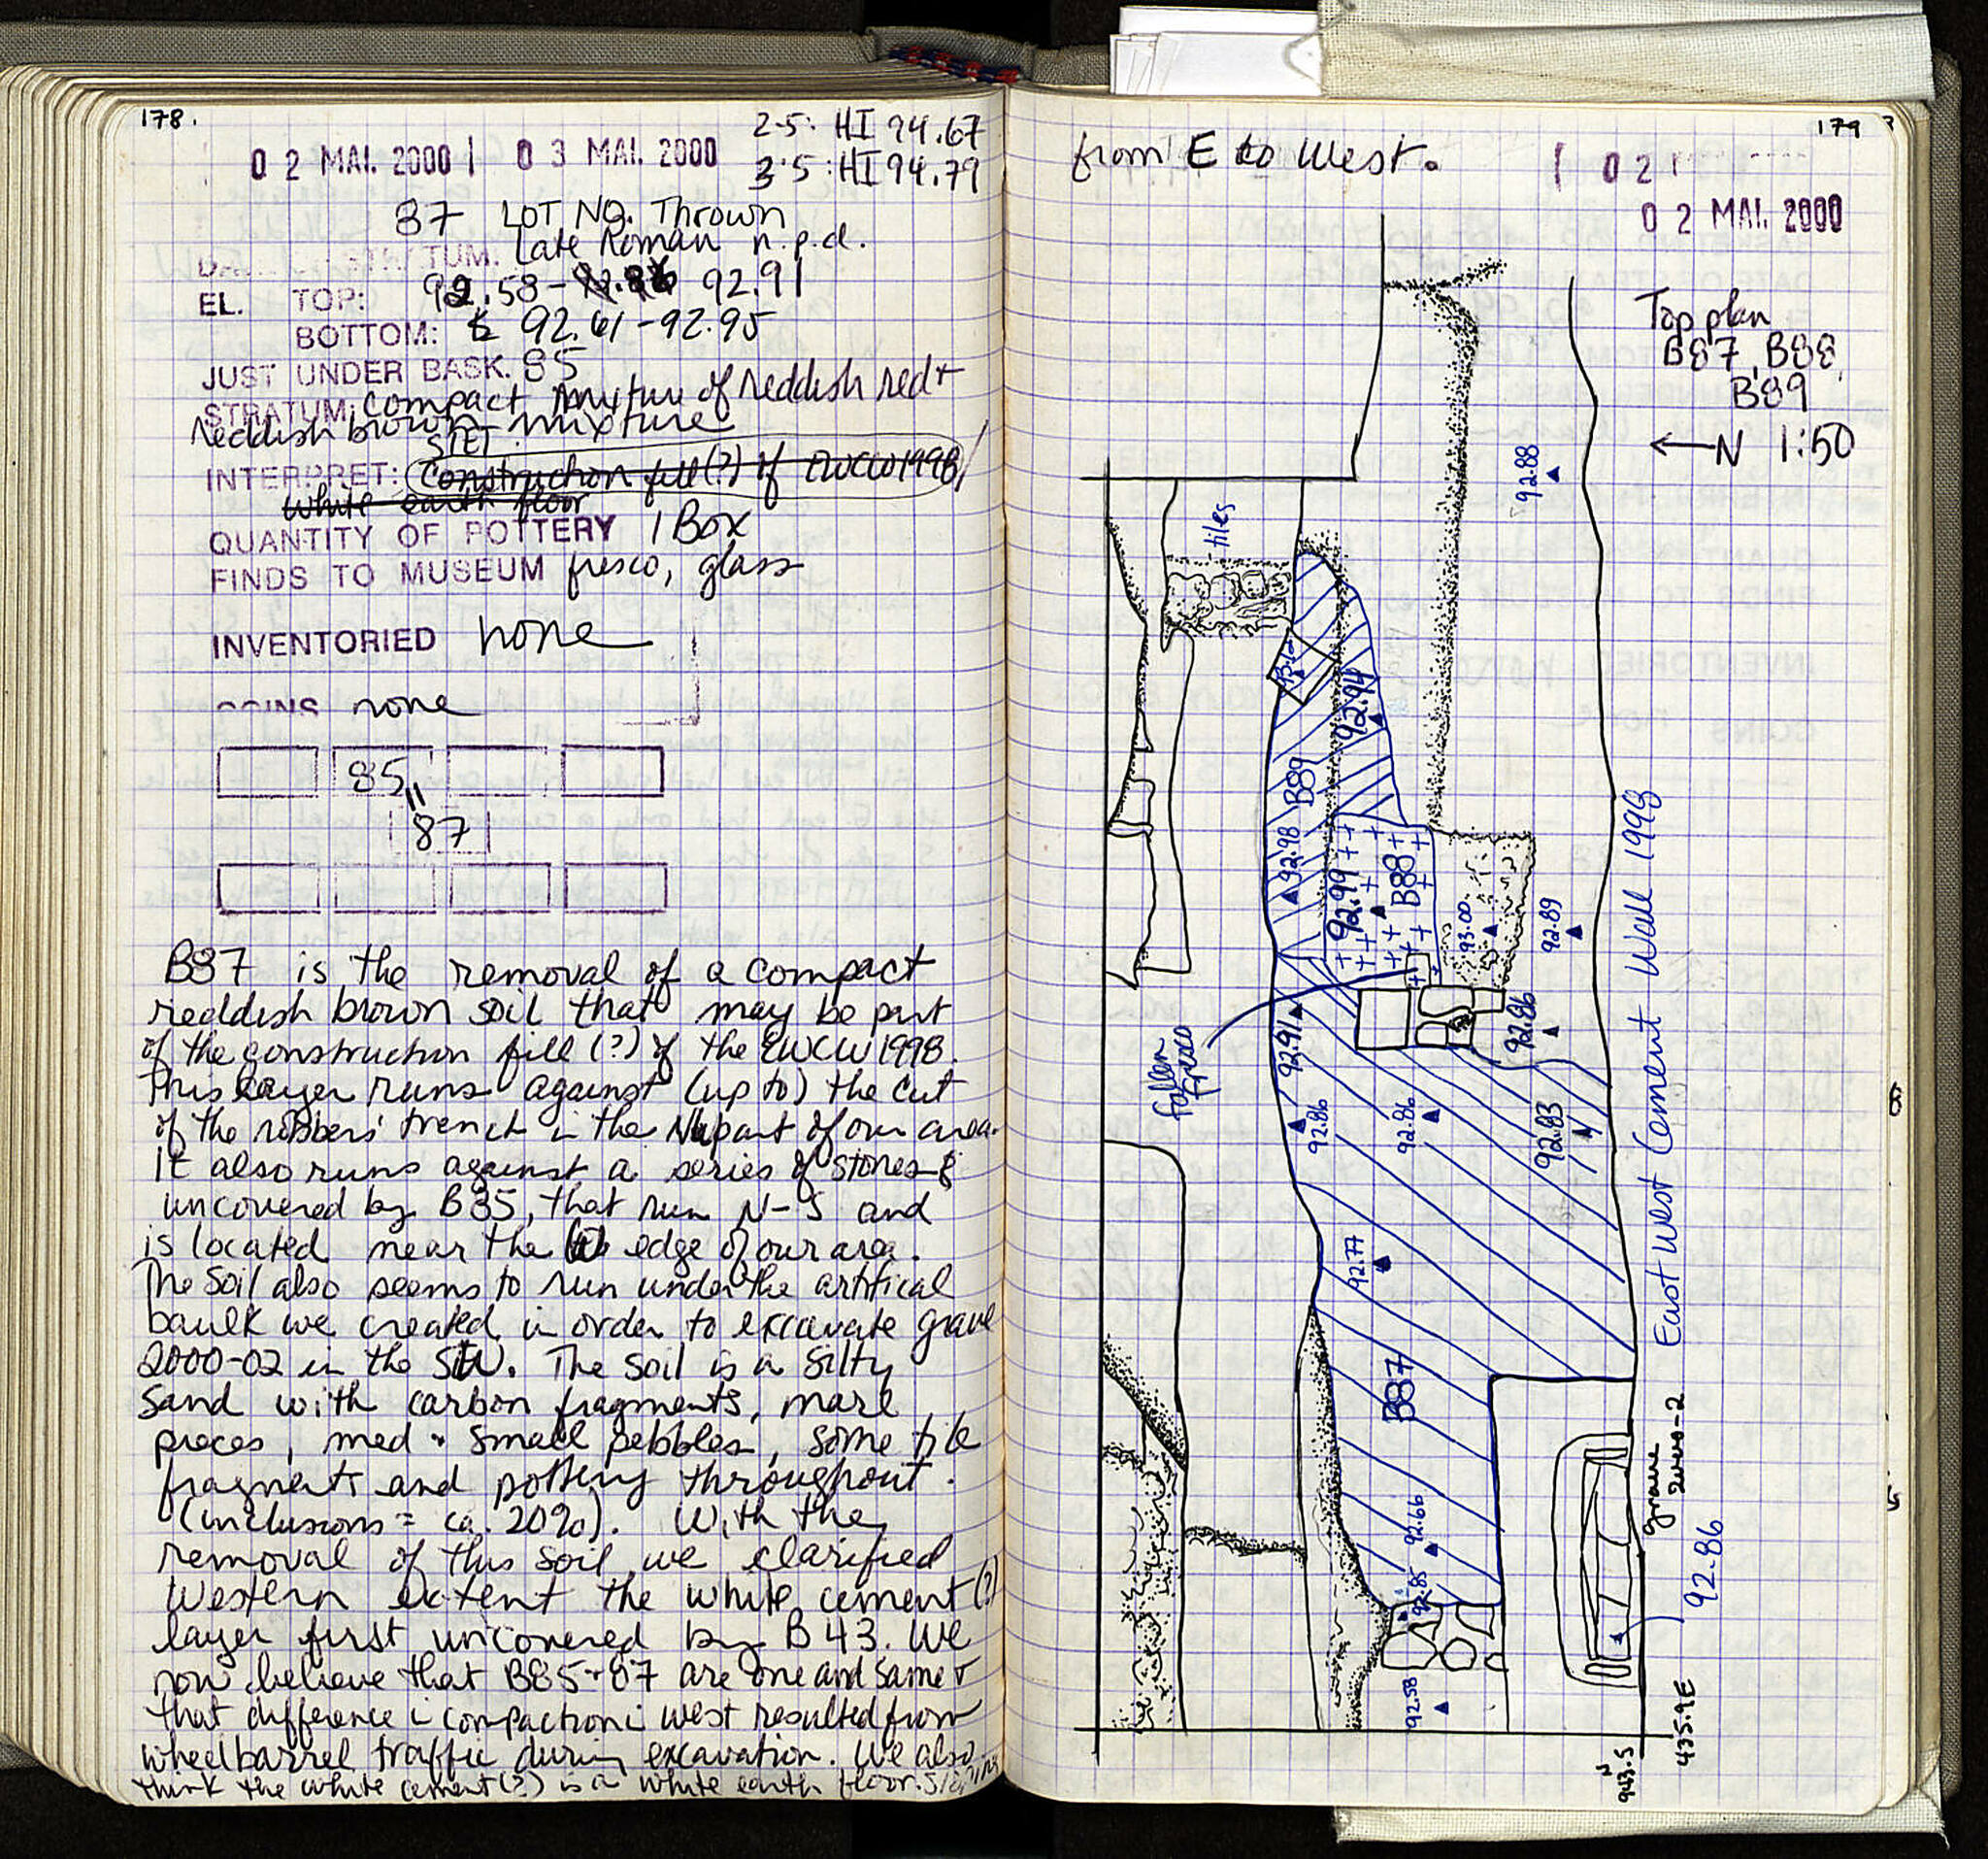 178.
2·5: HI 94.67
02 MAI. 2000 | 03 MAI. 2000
3·5: HI 94.79
87 LOT NO. Thrown
TUM. Late Roman n.p.d.
EL. TOP: 92.58 - 92.91
BOTTOM: 92.61 - 92.95
JUST UNDER BASK. 85
STRATUM: compact mixture of reddish red +
reddish brown mixture
STET
INTERPRET: Construction fill (?) of EWCW 1998/
White earth floor
QUANTITY OF POTTERY 1 Box
FINDS TO MUSEUM fresco, glass
INVENTORIED none
COINS none
85
87
B87 is the removal of a compact
reddish brown soil that may be part
of the construction fill (?) of the EWCW 1998.
This layer runs against (up to) the cut
of the robbers' trench in the N part of our area.
it also runs against a series of stones
uncovered by B85, that run N-S and
is located near the W edge of our area.
The soil also seems to run under the artifical
baulk we created in order to excavate grave
2000-02 in the SW. The soil is a silty
sand with carbon fragments, marl
pieces, med + small pebbles, some tile
fragments and pottery throughout.
(inclusions = ca. 20%). With the
removal of this soil we clarified
Western extent the white cement (?)
layer first uncovered by B43. We
now believe that B85+87 are one and same +
that difference i compaction i west resulted from
wheelbarrel traffic during excavation. We also
think the white cement (?) is a white earth floor. sloping
179
from E to West.
02
02 MAI. 2000
Top plan
B87, B88,
B89
←N 1:50
92.88
tiles
93.12
92.94
B89
92.98
92.99
B88
93.00
92.89
East West Cement Wall 1998
92.91
92.86
fallen
fresco
92.86
92.86
92.83
92.77
B87
grave
2000-2
92.86
92.66
92.85
92.58
943.5
435.9E